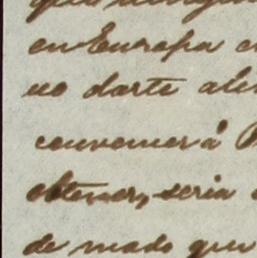 en Europa
no darte
convencer á
obtener, seria
de modo que